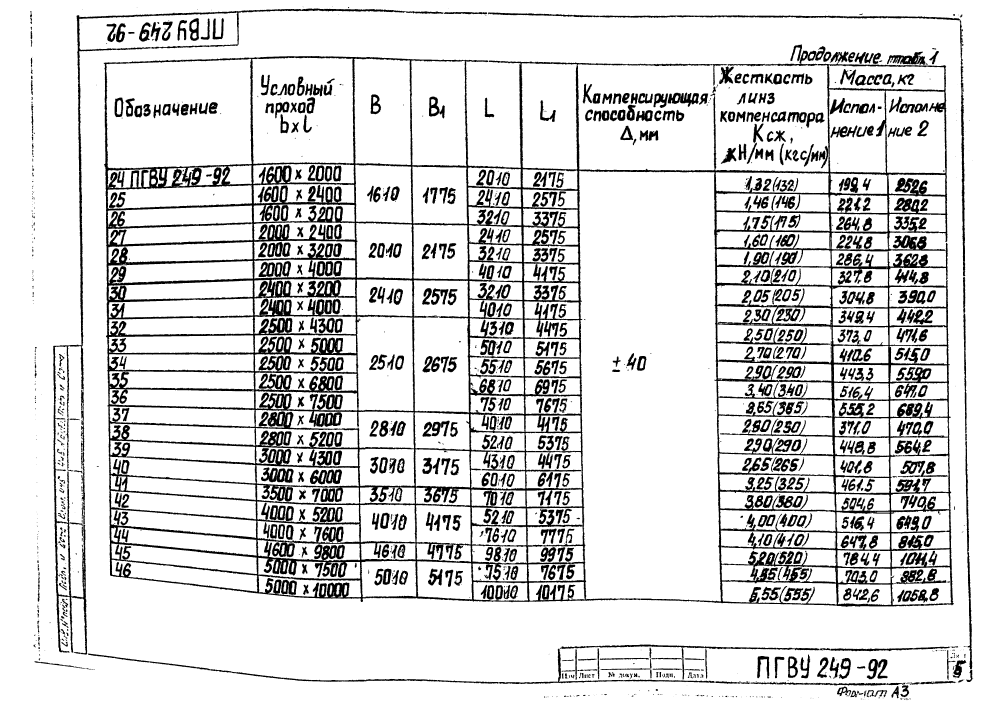 ПГВУ 249-92
Продолжение табл. 1
Обозначение | Условный проход b×l | B | B₁ | L | L₁ | Компенсирующая способность Δ, мм | Жесткость линз компенсатора Ксж, кН/мм (кгс/мм) | Масса, кг
Исполнение 1 | Исполнение 2
24 ПГВУ 249-92 | 1600 × 2000 | 1610 | 1775 | 2010 | 2175 | ± 40 | 1,32(132) | 199,4 | 252,6
25 | 1600 × 2400 | 2410 | 2575 | 1,46(146) | 221,2 | 280,2
26 | 1600 × 3200 | 3210 | 3375 | 1,75(175) | 264,8 | 335,2
27 | 2000 × 2400 | 2010 | 2175 | 2410 | 2575 | 1,60(160) | 224,8 | 306,8
28 | 2000 × 3200 | 3210 | 3375 | 1,90(190) | 286,4 | 362,8
29 | 2000 × 4000 | 4010 | 4175 | 2,10(210) | 327,8 | 414,8
30 | 2400 × 3200 | 2410 | 2575 | 3210 | 3375 | 2,05(205) | 304,8 | 390,0
31 | 2400 × 4000 | 4010 | 4175 | 2,30(230) | 349,4 | 442,2
32 | 2500 × 4300 | 2510 | 2675 | 4310 | 4475 | 2,50(250) | 373,0 | 471,6
33 | 2500 × 5000 | 5010 | 5175 | 2,70(270) | 410,6 | 515,0
34 | 2500 × 5500 | 5510 | 5675 | 2,90(290) | 443,3 | 559,0
35 | 2500 × 6800 | 6810 | 6975 | 3,40(340) | 516,4 | 647,0
36 | 2500 × 7500 | 7510 | 7675 | 3,65(365) | 555,2 | 689,4
37 | 2800 × 4000 | 2810 | 2975 | 4010 | 4175 | 2,50(250) | 371,0 | 470,0
38 | 2800 × 5200 | 5210 | 5375 | 2,90(290) | 448,8 | 564,2
39 | 3000 × 4300 | 3010 | 3175 | 4310 | 4475 | 2,65(265) | 401,8 | 507,8
40 | 3000 × 6000 | 6010 | 6175 | 3,25(325) | 461.5 | 591,7
41 | 3500 × 7000 | 3510 | 3675 | 7010 | 7175 | 3,80(380) | 504,6 | 740,6
42 | 4000 × 5200 | 4010 | 4175 | 5210 | 5375 | 4,00(400) | 516,4 | 649,0
43 | 4000 × 7600 | 7610 | 7775 | 4,10(410) | 647,8 | 815,0
44 | 4600 × 9800 | 4610 | 4775 | 9810 | 9975 | 5,20(520) | 784,4 | 1011,4
45 | 5000 × 7500 | 5010 | 5175 | 7510 | 7675 | 4,55(455) | 703,0 | 882,8
46 | 5000 × 10000 | 10010 | 10175 | 5,55(555) | 842,6 | 1058,8
Изм Лист № докум. Подп. Дата
ПГВУ 249-92
5
Формат А3